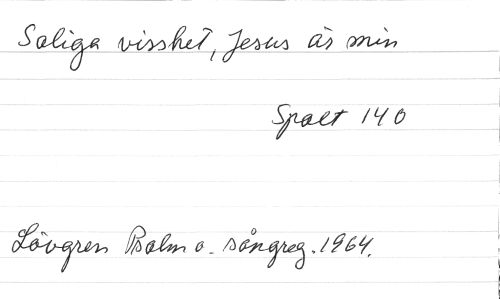 Saliga visshet, Jesus är min
Spalt 140
Lövgren Psalm o. sångreg. 1964.